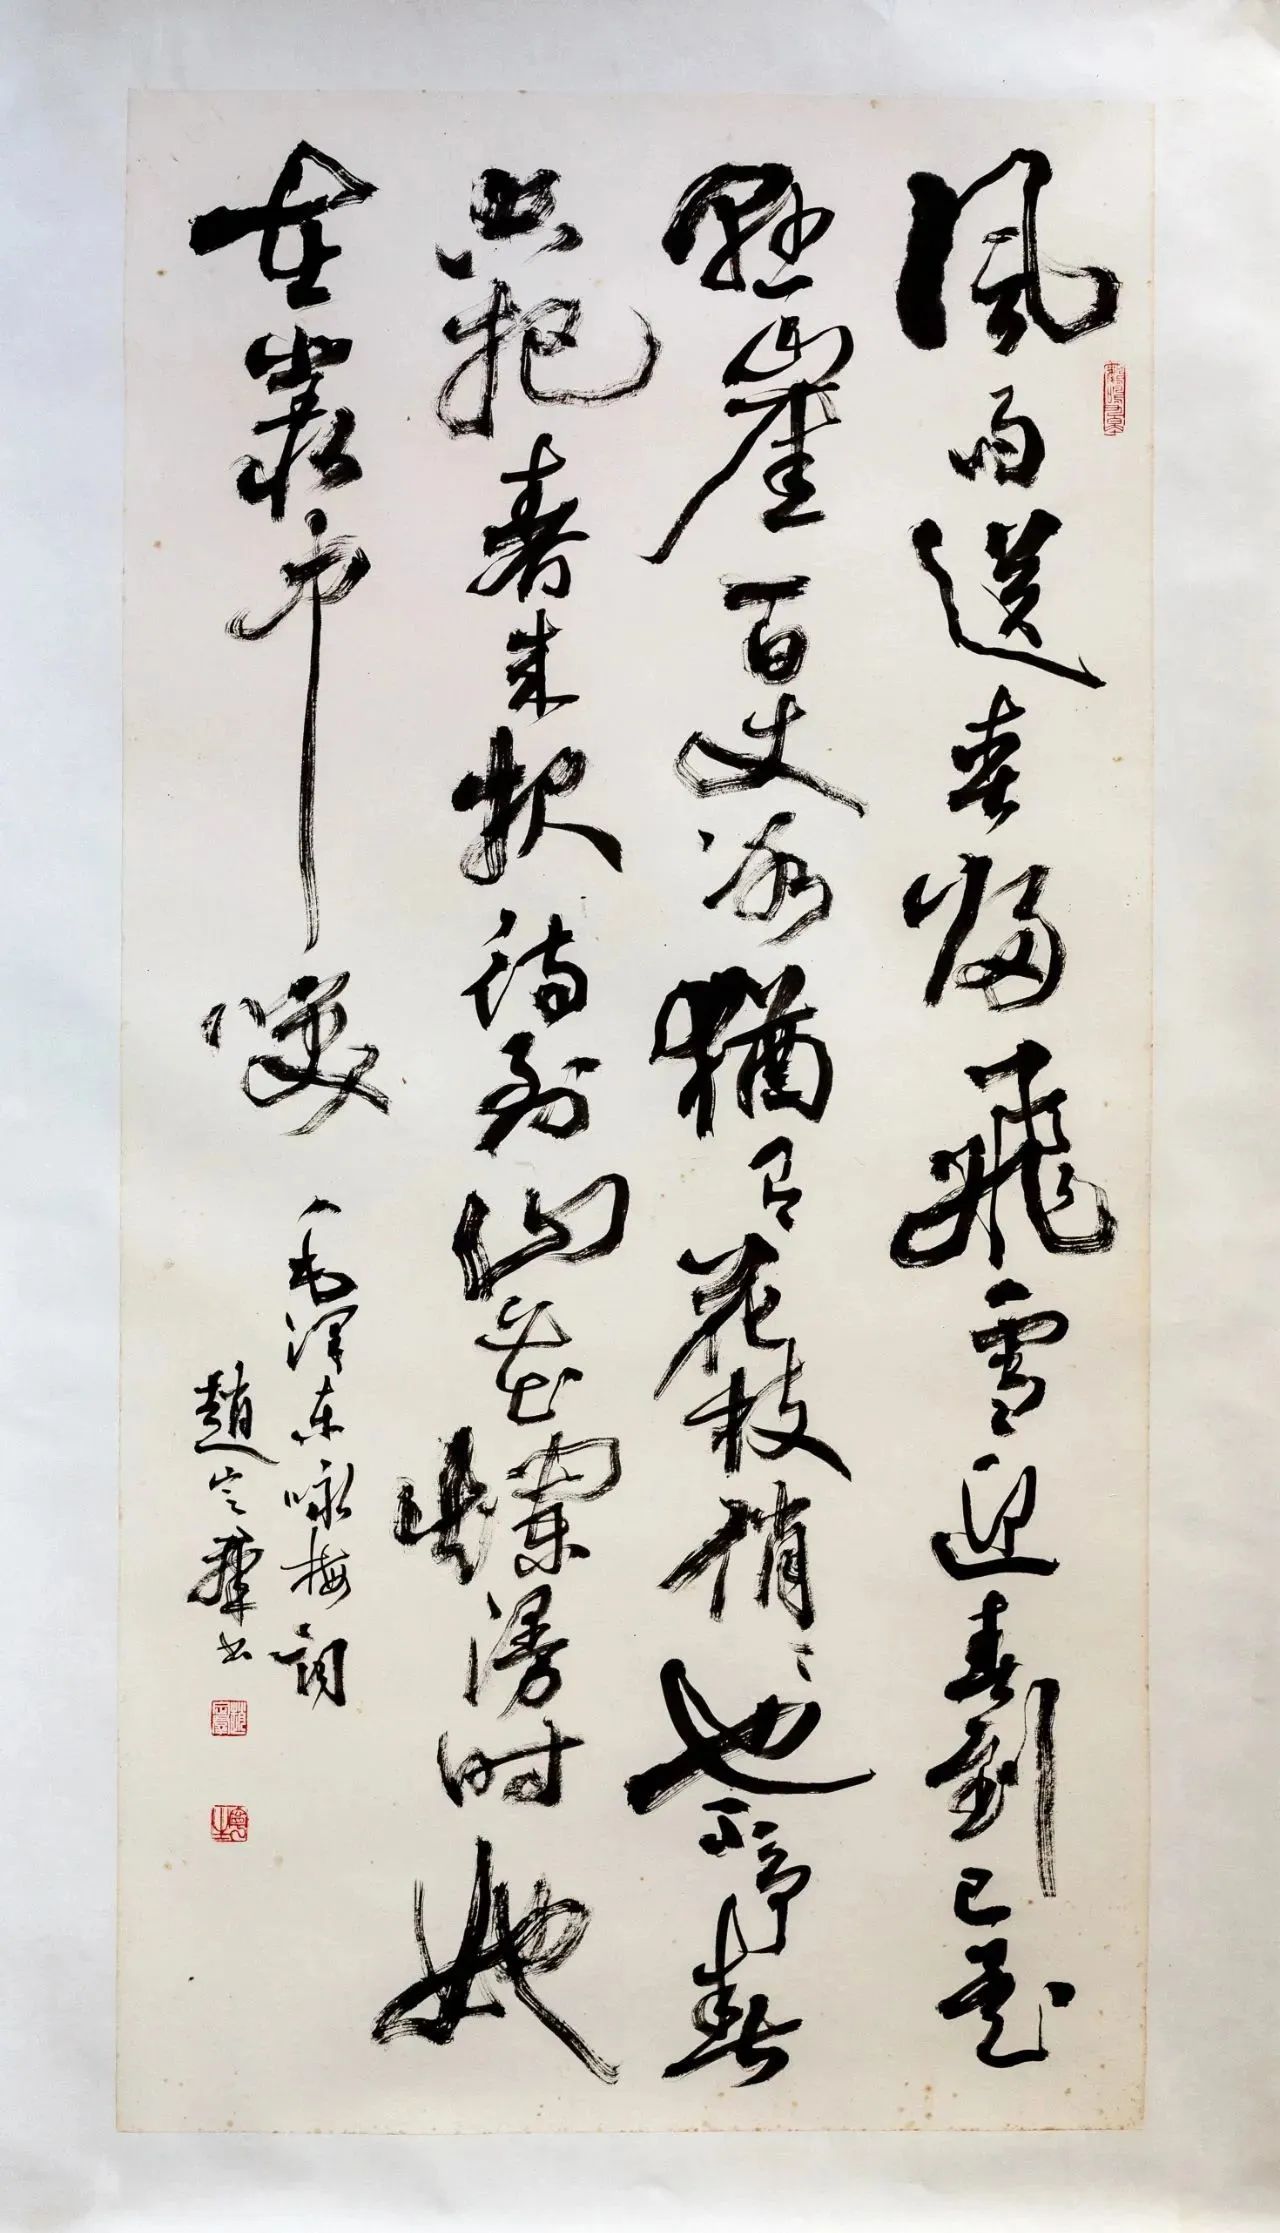 風雨送春歸飛雪迎春到已是
懸崖百丈冰猶有花枝俏〻也不爭春
只把春來報待到山花爛漫時她
在叢中咲
毛澤东咏梅詞
趙书